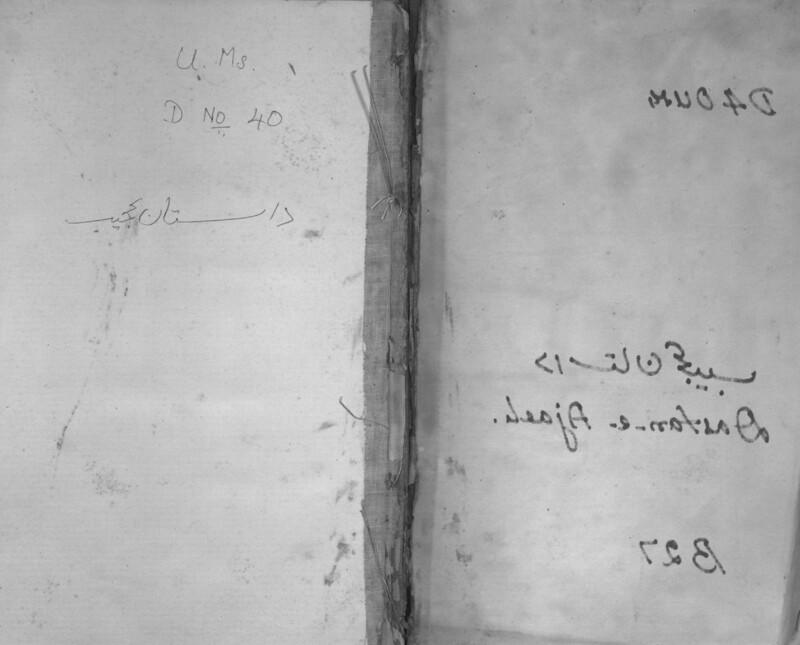 U. Ms.
D No 40
داستان عجیب
D 40 UM
داستان عجیب
Dastan-e-Ajaeb.
B 27